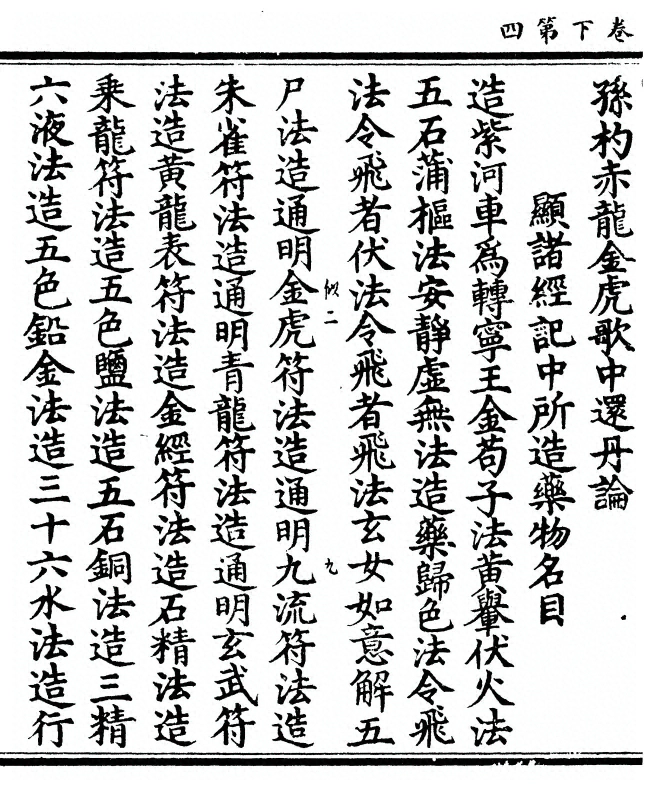 卷下第四
孫杓赤龍金虎歌中還丹論
顯諸經記中所造藥物名目
造紫河車爲轉寧王金苟子法黃轝伏火法
五石蒲樞法安靜虛無法造藥歸色法令飛
法令飛者伏法令飛者飛法玄女如意解五
似二
九
尸法造通明金虎符法造通明九流符法造
朱雀符法造通明青龍符法造通明玄武符
法造黃龍表符法造金經符法造石精法造
乘龍符法造五色鹽法造五石銅法造三精
六液法造五色鉛金法造三十六水法造行